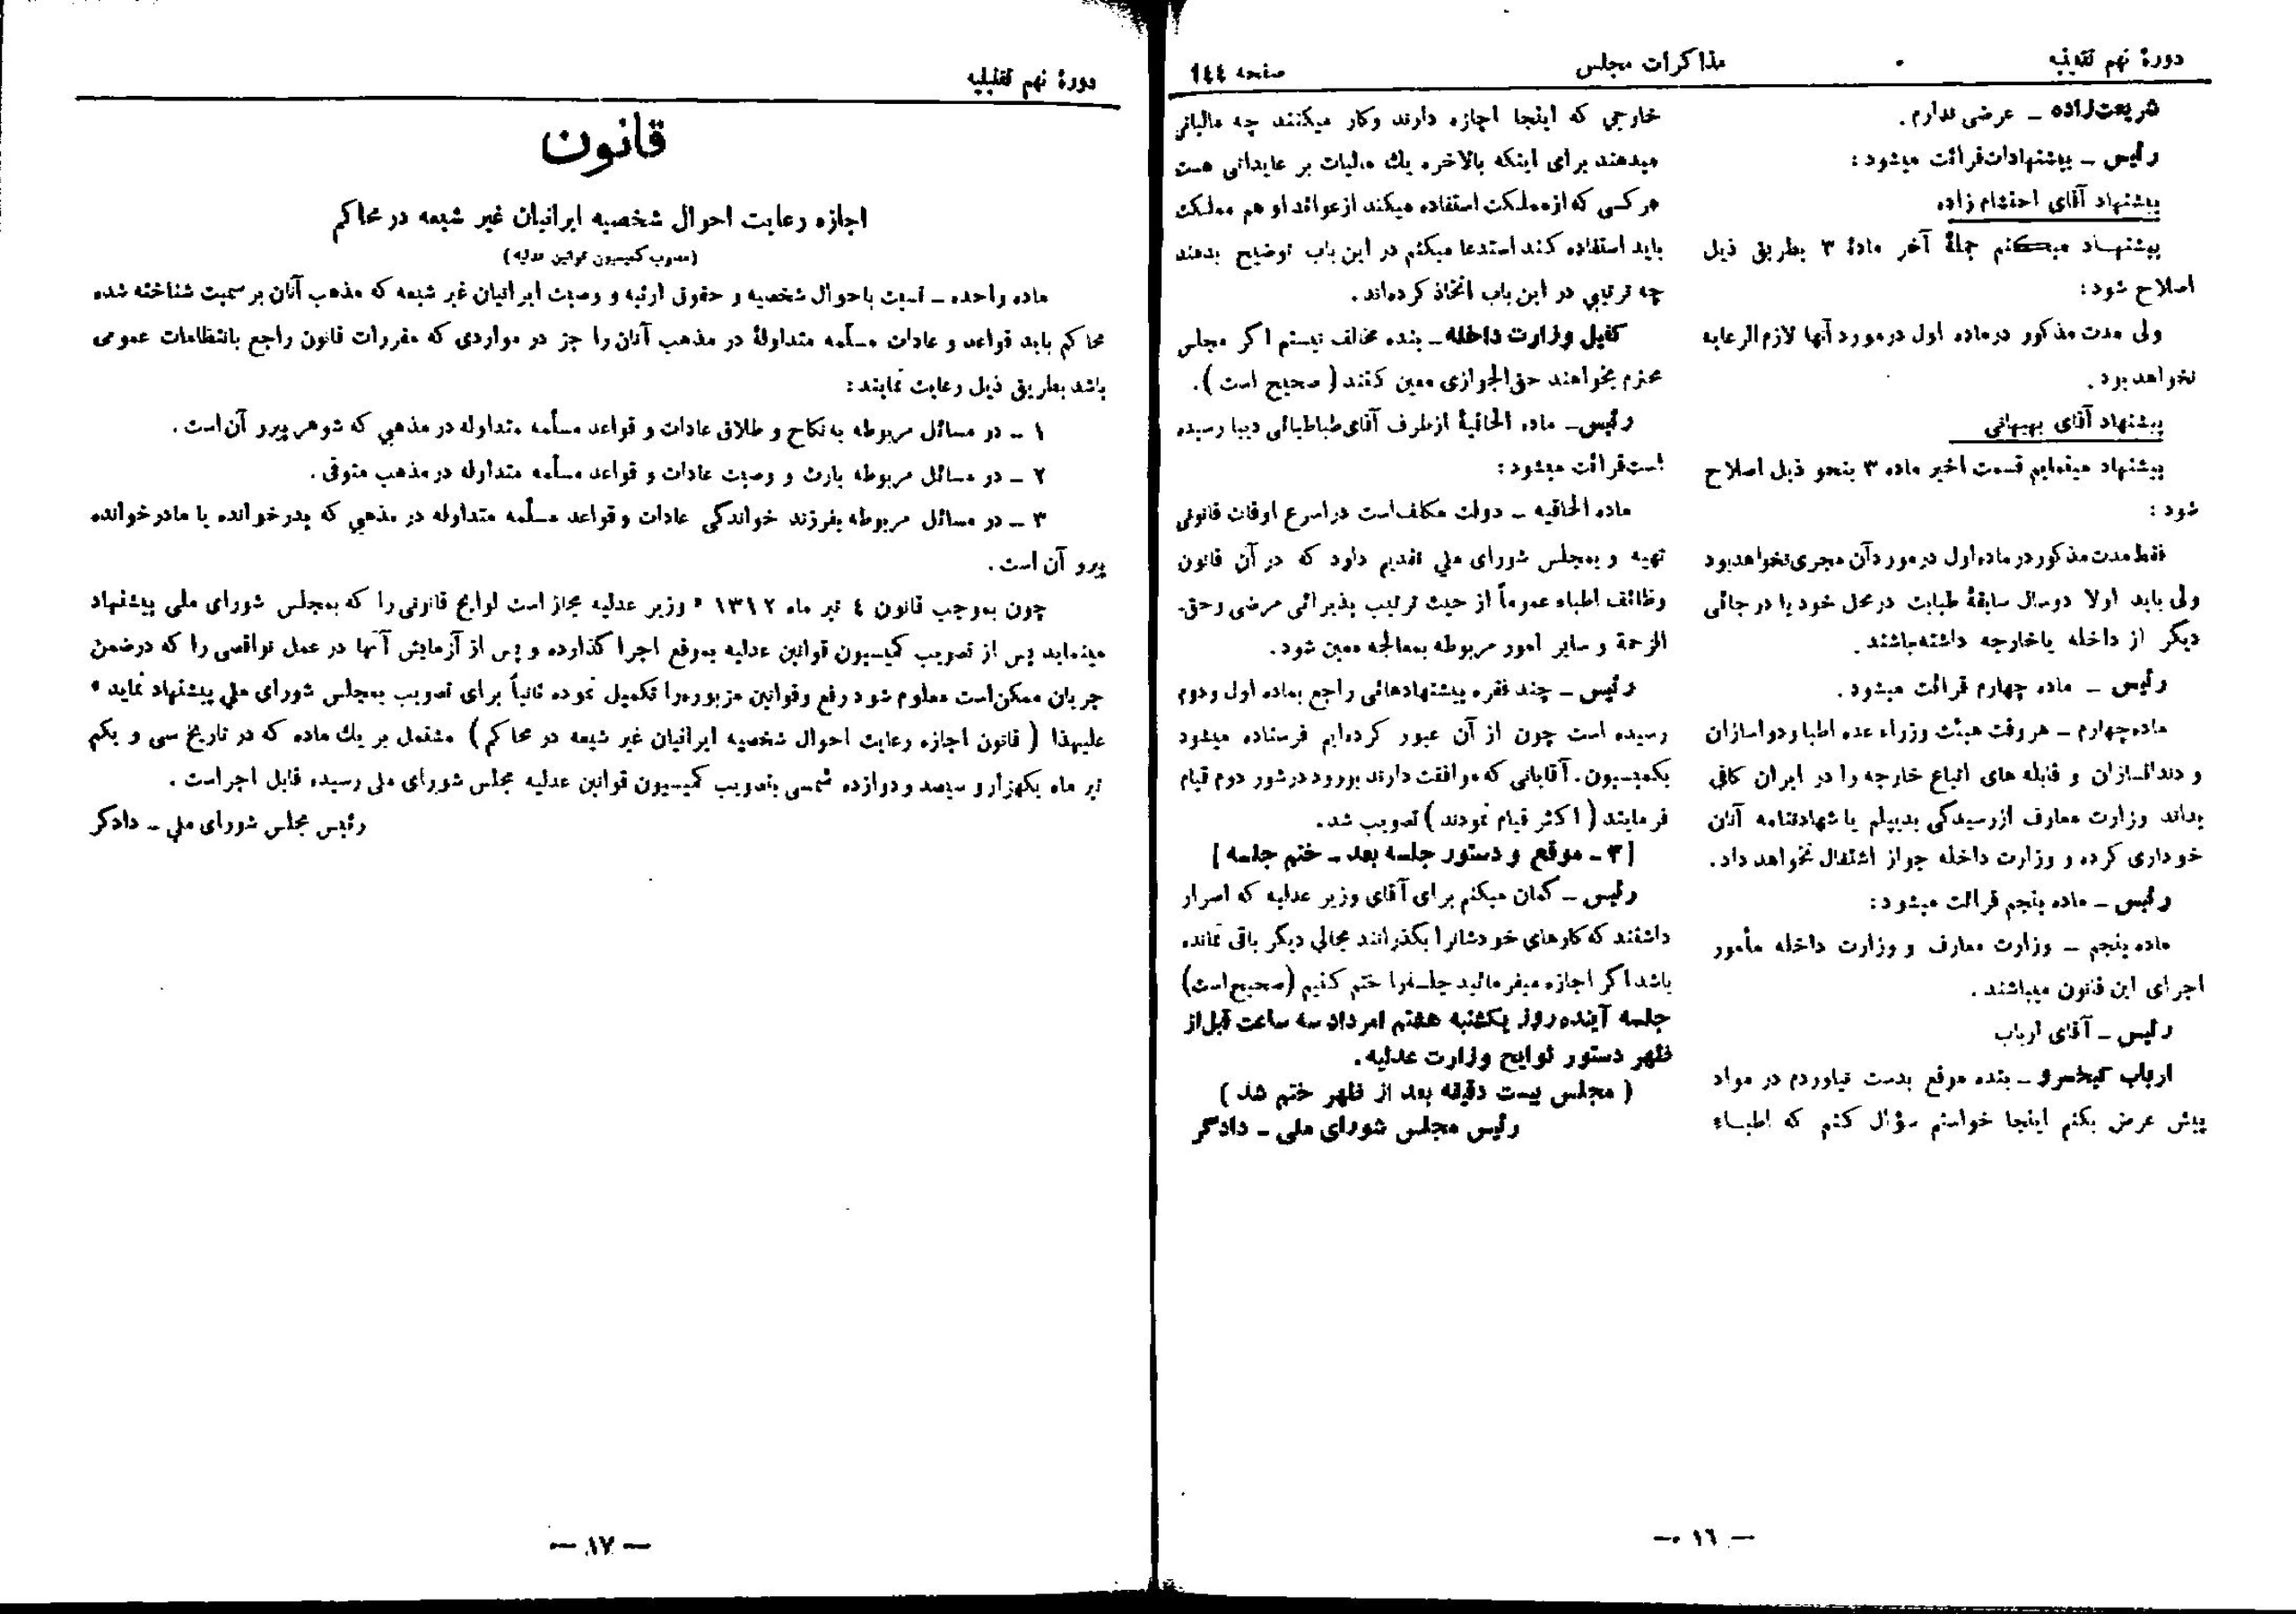 دورهٔ نهم تقنینیه
مذاکرات مجلس
صفحه ١٤٤
شریعت‌زاده ــ عرضی ندارم .
رئیس ــ پیشنهادات قرائت میشود :
پیشنهاد آقای احتشام زاده
پیشنهاد میکنم جملهٔ آخر مادهٔ ٣ بطریق ذیل
اصلاح شود :
ولی مدت مذکور درماده اول درمورد آنها لازم الرعایه
نخواهد بود .
پیشنهاد آقای بهبهانی
پیشنهاد مینمایم قسمت اخیر ماده ٣ بنحو ذیل اصلاح
شود :
فقط مدت مذکور در ماده اول درمورد آن مجری نخواهد بود
ولی باید اولا دوسال سابقهٔ طبابت درمحل خود یا در جائی
دیگر از داخله یا خارجه داشته باشند .
رئیس ــ ماده چهارم قرائت میشود .
ماده چهارم ــ هر وقت هیئت وزراء عده اطبا و دواسازان
و دندانسازان و قابله های اتباع خارجه را در ایران کافی
بداند وزارت معارف از رسیدگی بدیپلم یا شهادتنامه آنان
خودداری کرده و وزارت داخله جواز اشتغال نخواهد داد .
رئیس ــ ماده پنجم قرائت میشود :
ماده پنجم ــ وزارت معارف و وزارت داخله مأمور
اجرای این قانون میباشند .
رئیس ــ آقای ارباب
ارباب کیخسرو ــ بنده موقع بدست نیاوردم در مواد
پیش عرض بکنم اینجا خواستم سؤال کنم که اطباء
خارجی که اینجا اجازه دارند وکار میکنند چه مالیاتی
میدهند برای اینکه بالاخره یك مالیات بر عایداتی هست
هر کسی که از مملکت استفاده میکند از عوائد او هم مملکت
باید استفاده کند استدعا میکنم در این باب توضیح بدهند
چه ترتیبی در این باب اتخاذ کرده‌اند .
کفیل وزارت داخله ــ بنده مخالف نیستم اگر مجلس
محترم بخواهند حق‌الجوازی معین کنند ( صحیح است ) .
رئیس ــ ماده الحاقیهٔ از طرف آقای طباطبائی دیبا رسیده
است قرائت میشود :
ماده الحاقیه ــ دولت مکلف است در اسرع اوقات قانونی
تهیه و بمجلس شورای ملی تقدیم دارد که در آن قانون
وظائف اطباء عموماً از حیث ترتیب پذیرائی مرضی وحق‌ـ
الزحمة و سایر امور مربوطه بمعالجه معین شود .
رئیس ــ چند فقره پیشنهادهائی راجع بماده اول و دوم
رسیده است چون از آن عبور کرده‌ایم فرستاده میشود
بکمیسیون . آقایانی که موافقت دارند بورود در شور دوم قیام
فرمایند ( اکثر قیام نمودند ) تصویب شد .
[ ٣ ــ موقع و دستور جلسه بعد ــ ختم جلسه ]
رئیس ــ گمان میکنم برای آقای وزیر عدلیه که اصرار
داشتند که کارهای خودشانرا بگذرانند مجالی دیگر باقی نمانده
باشد اگر اجازه میفرمائید جلسه‌را ختم کنیم (صحیح است)
جلسه آینده روز یکشنبه هشتم امرداد سه ساعت قبل از
ظهر دستور لوایح وزارت عدلیه .
( مجلس بیست دقیقه بعد از ظهر ختم شد )
رئیس مجلس شورای ملی ــ دادگر
— ١٦ —
دورهٔ نهم تقنینیه
قانون
اجازه رعایت احوال شخصیه ایرانیان غیر شیعه در محاکم
(مصوب کمیسیون قوانین عدلیه)
ماده واحده ــ نسبت باحوال شخصیه و حقوق ارثیه و وصیت ایرانیان غیر شیعه که مذهب آنان بر سمیت شناخته شده
محاکم باید قواعد و عادات مسلّمه متداولهٔ در مذهب آنان را جز در مواردی که مقررات قانون راجع بانتظامات عمومی
باشد بطریق ذیل رعایت نمایند :
١ ــ در مسائل مربوطه به نکاح و طلاق عادات و قواعد مسلّمه متداوله در مذهبی که شوهر پیرو آن است .
٢ ــ در مسائل مربوطه بارث و وصیت عادات و قواعد مسلّمه متداوله در مذهب متوفی .
٣ ــ در مسائل مربوطه بفرزند خواندگی عادات و قواعد مسلّمه متداوله در مذهبی که پدر خوانده یا مادر خوانده
پیرو آن است .
چون بموجب قانون ٤ تیر ماه ١٣١٢ « وزیر عدلیه مجاز است لوایح قانونی را که بمجلس شورای ملی پیشنهاد
مینماید پس از تصویب کمیسیون قوانین عدلیه بموقع اجرا گذارده و پس از آزمایش آنها در عمل نواقصی را که درضمن
جریان ممکن است معلوم شود رفع وقوانین مزبوره‌را تکمیل نموده ثانیاً برای تصویب بمجلس شورای ملی پیشنهاد نماید »
علیهذا ( قانون اجازه رعایت احوال شخصیه ایرانیان غیر شیعه در محاکم ) مشتمل بر یك ماده که در تاریخ سی و یکم
تیر ماه یکهزار و سیصد و دوازده شمسی بتصویب کمیسیون قوانین عدلیه مجلس شورای ملی رسیده قابل اجراست .
رئیس مجلس شورای ملی ــ دادگر
— ١٧ —